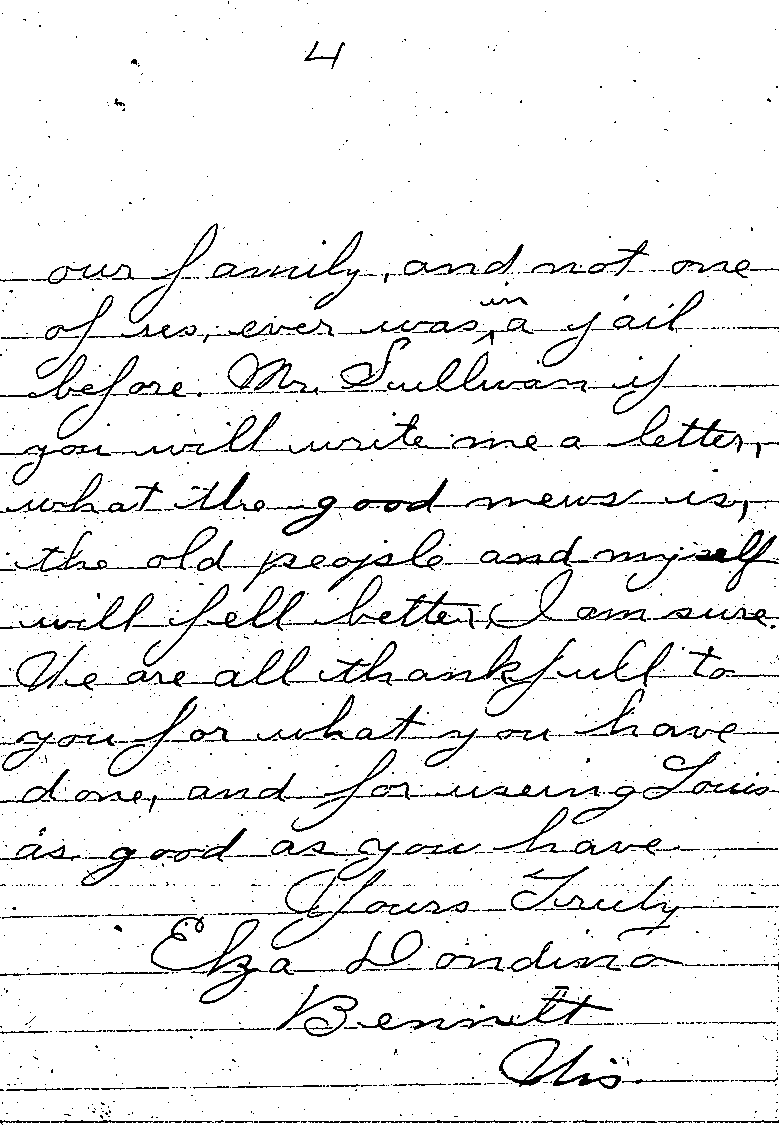 4
our family, and not one
in
of us, ever was ^ a jail
before. Mr. Sullivan if
you will write me a letter,
what the good news is,
the old people and myself
will fell better, I am sure.
We are all thankfull to
you for what you have
done, and for useing Louis
as good as you have.
Yours Truly
Elza Dondino
Bennett
Wis.